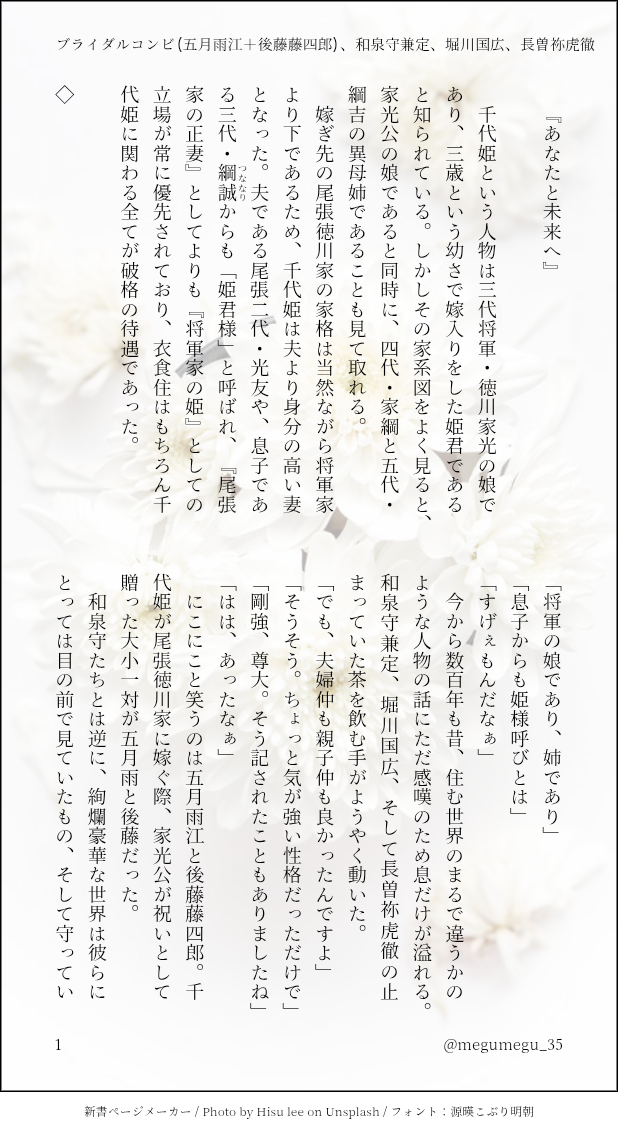 ブライダルコンビ(五月雨江＋後藤藤四郎)、和泉守兼定、堀川国広、長曽祢虎徹
『あなたと未来へ』
千代姫という人物は三代将軍・徳川家光の娘で
あり、三歳という幼さで嫁入りをした姫君である
と知られている。しかしその家系図をよく見ると、
家光公の娘であると同時に、四代・家綱と五代・
綱吉の異母姉であることも見て取れる。
嫁ぎ先の尾張徳川家の家格は当然ながら将軍家
より下であるため、千代姫は夫より身分の高い妻
となった。夫である尾張二代・光友や、息子であ
る三代・綱誠からも「姫君様」と呼ばれ、『尾張
つななり
家の正妻』としてよりも『将軍家の姫』としての
立場が常に優先されており、衣食住はもちろん千
代姫に関わる全てが破格の待遇であった。
◇
「将軍の娘であり、姉であり」
「息子からも姫様呼びとは」
「すげぇもんだなぁ」
今から数百年も昔、住む世界のまるで違うかの
ような人物の話にただ感嘆のため息だけが溢れる。
和泉守兼定、堀川国広、そして長曽祢虎徹の止
まっていた茶を飲む手がようやく動いた。
「でも、夫婦仲も親子仲も良かったんですよ」
「そうそう。ちょっと気が強い性格だっただけで」
「剛強、尊大。そう記されたこともありましたね」
「はは、あったなぁ」
にこにこと笑うのは五月雨江と後藤藤四郎。千
代姫が尾張徳川家に嫁ぐ際、家光公が祝いとして
贈った大小一対が五月雨と後藤だった。
和泉守たちとは逆に、絢爛豪華な世界は彼らに
とっては目の前で見ていたもの、そして守ってい
1
@megumegu_35
新書ページメーカー / Photo by Hisu lee on Unsplash / フォント：源暎こぶり明朝